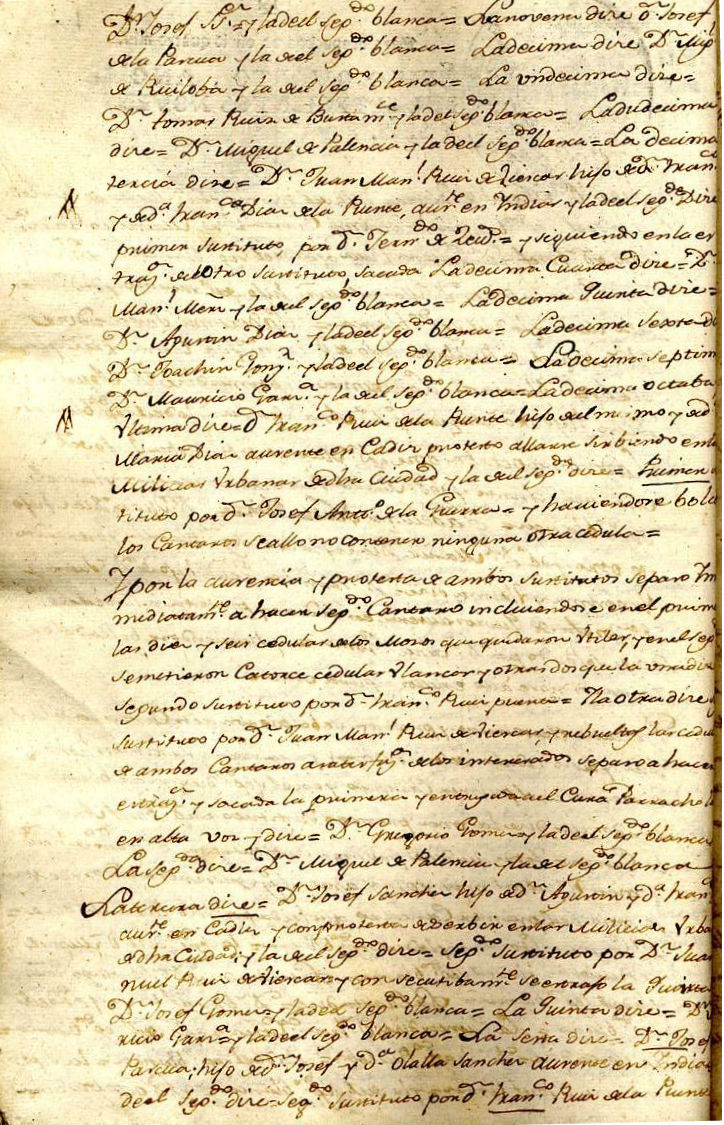 Dn Josef Gr = y la del segdo blanca = La novena dice Dn Josef
de la Pascua y la del segdo blanca = La decima dice Dn Migl
de Ruiloba y la del segdo blanca = La vndecima dice =
Dn tomas Ruiz de Bustamte y la del segdo blanca = La dudecima
dice = Dn Miguel de Palencia y la del segdo blanca = La decima
tercia dice = Dn Juan Manl Ruiz de Viercas hijo de dn Franco
y de da Franca Diaz de la Puente, auste en Yndias y la del segdo Dice
primer sustituto, por dn Ferndo de = y siguiendo en la es
traỹ de otro sustituto, sacada La decima Cuarta dice = Dn
Manl y la del segdo blanca = La decima Quinta dice =
Dn Agustin Diaz y la del segdo blanca = La decima sexta di
Dn Joachin Gonz y la del segdo blanca = La decima septim
Dn Mauricio Garza y la del segdo blanca = La decima octaba
Vltima dice = dn Franco Ruiz de la Puente hijo del mismo y de da
Maria Diaz ausente en Cadiz protesto allarse sirbiendo en la
Milicias Vrbanas de dha Ciudad y la del segdo dice = Primer
tituto por dn Josef Anto de la Guerra = y haviendose bol
los Cantaros se allo no contener ninguna otra cedula =
Y por la ausencia y protesta de ambos sustitutos se paso Ym
mediatamte a hacer segdo Cantaro incluiendose en el prim
las diez y seis cedulas de los Mozos que quedaron Vtiles, y en el seg
se metieron Catorce cedulas Vlancas y otras dos que la vna di
segundo sustituto por dn Franco Ruiz puente = Y la otra dice
sustituto por dn Juan Manl Ruiz de Viercas, y rebueltas las cedul
de ambos Cantaros a satisfn de los interesados se paso a hacer
estran y sacada la primera y entregada al Cura Parracho
en alta voz y dice = Dn Gregorio Gomez y la del segdo blanca
La segda dice = Dn Miguel de Palencia y la del segdo blanca
La tercera dice = Dn Josef Sanchez hijo de dn Agustin y da Franca
auste en Cadiz y con protesta de serbir en las Milicias Vrba
de dha Ciudad; y la del segdo dice = segdo sustituto por Dn Jua
nuel Ruiz de Viercas y consecutibamte se extrajo la Quarta
Dn Josef Gomez y la del segdo blanca = La Quinta dice = Dn
ricio Garza = y la del segdo blanca = La sesta dice = Dn Josef
Pascua; hijo de dn Josef y da Olalla Sanchez ausente en Yndia
de el segdo dice = segdo sustituto por dn Franco Ruiz de la Puente